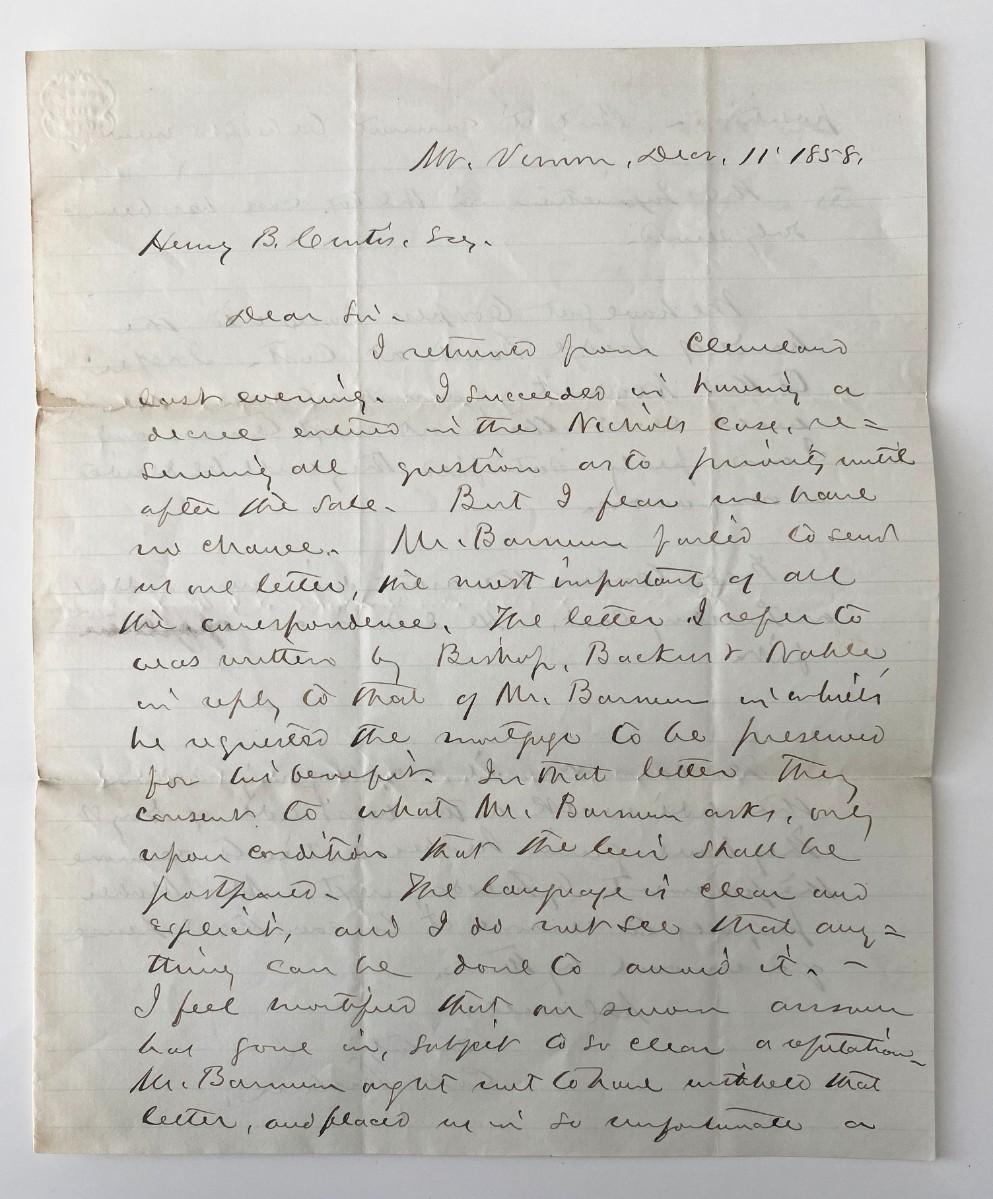 Mt. Vernon, Decr. 11' 1858.
Henry B. Curtis. Esq.
Dear Sir.
I returned from Cleveland
last evening. I succeeded in having a
decree entered in the Nichols case, re=
serving all question as to priority until
after the sale. But I fear we have
no chance. Mr. Barnum failed to send
us one letter, the most important of all
the correspondence. The letter I refer to
was written by Bishop, Backus & Noble,
in reply to that of Mr. Barnum in which
he requested the mortgage to be preserved
for his benefit. In that letter they
consent to what Mr. Barnum asks, only
upon condition that the lien shall be
postponed. The language is clear and
explicit, and I do not see that any=
thing can be done to avoid it. –
I feel mortified that our sworn answer
has gone in, subject to so clear a refutation–
Mr. Barnum ought not to have withheld that
letter, and placed us in so unfortunate a